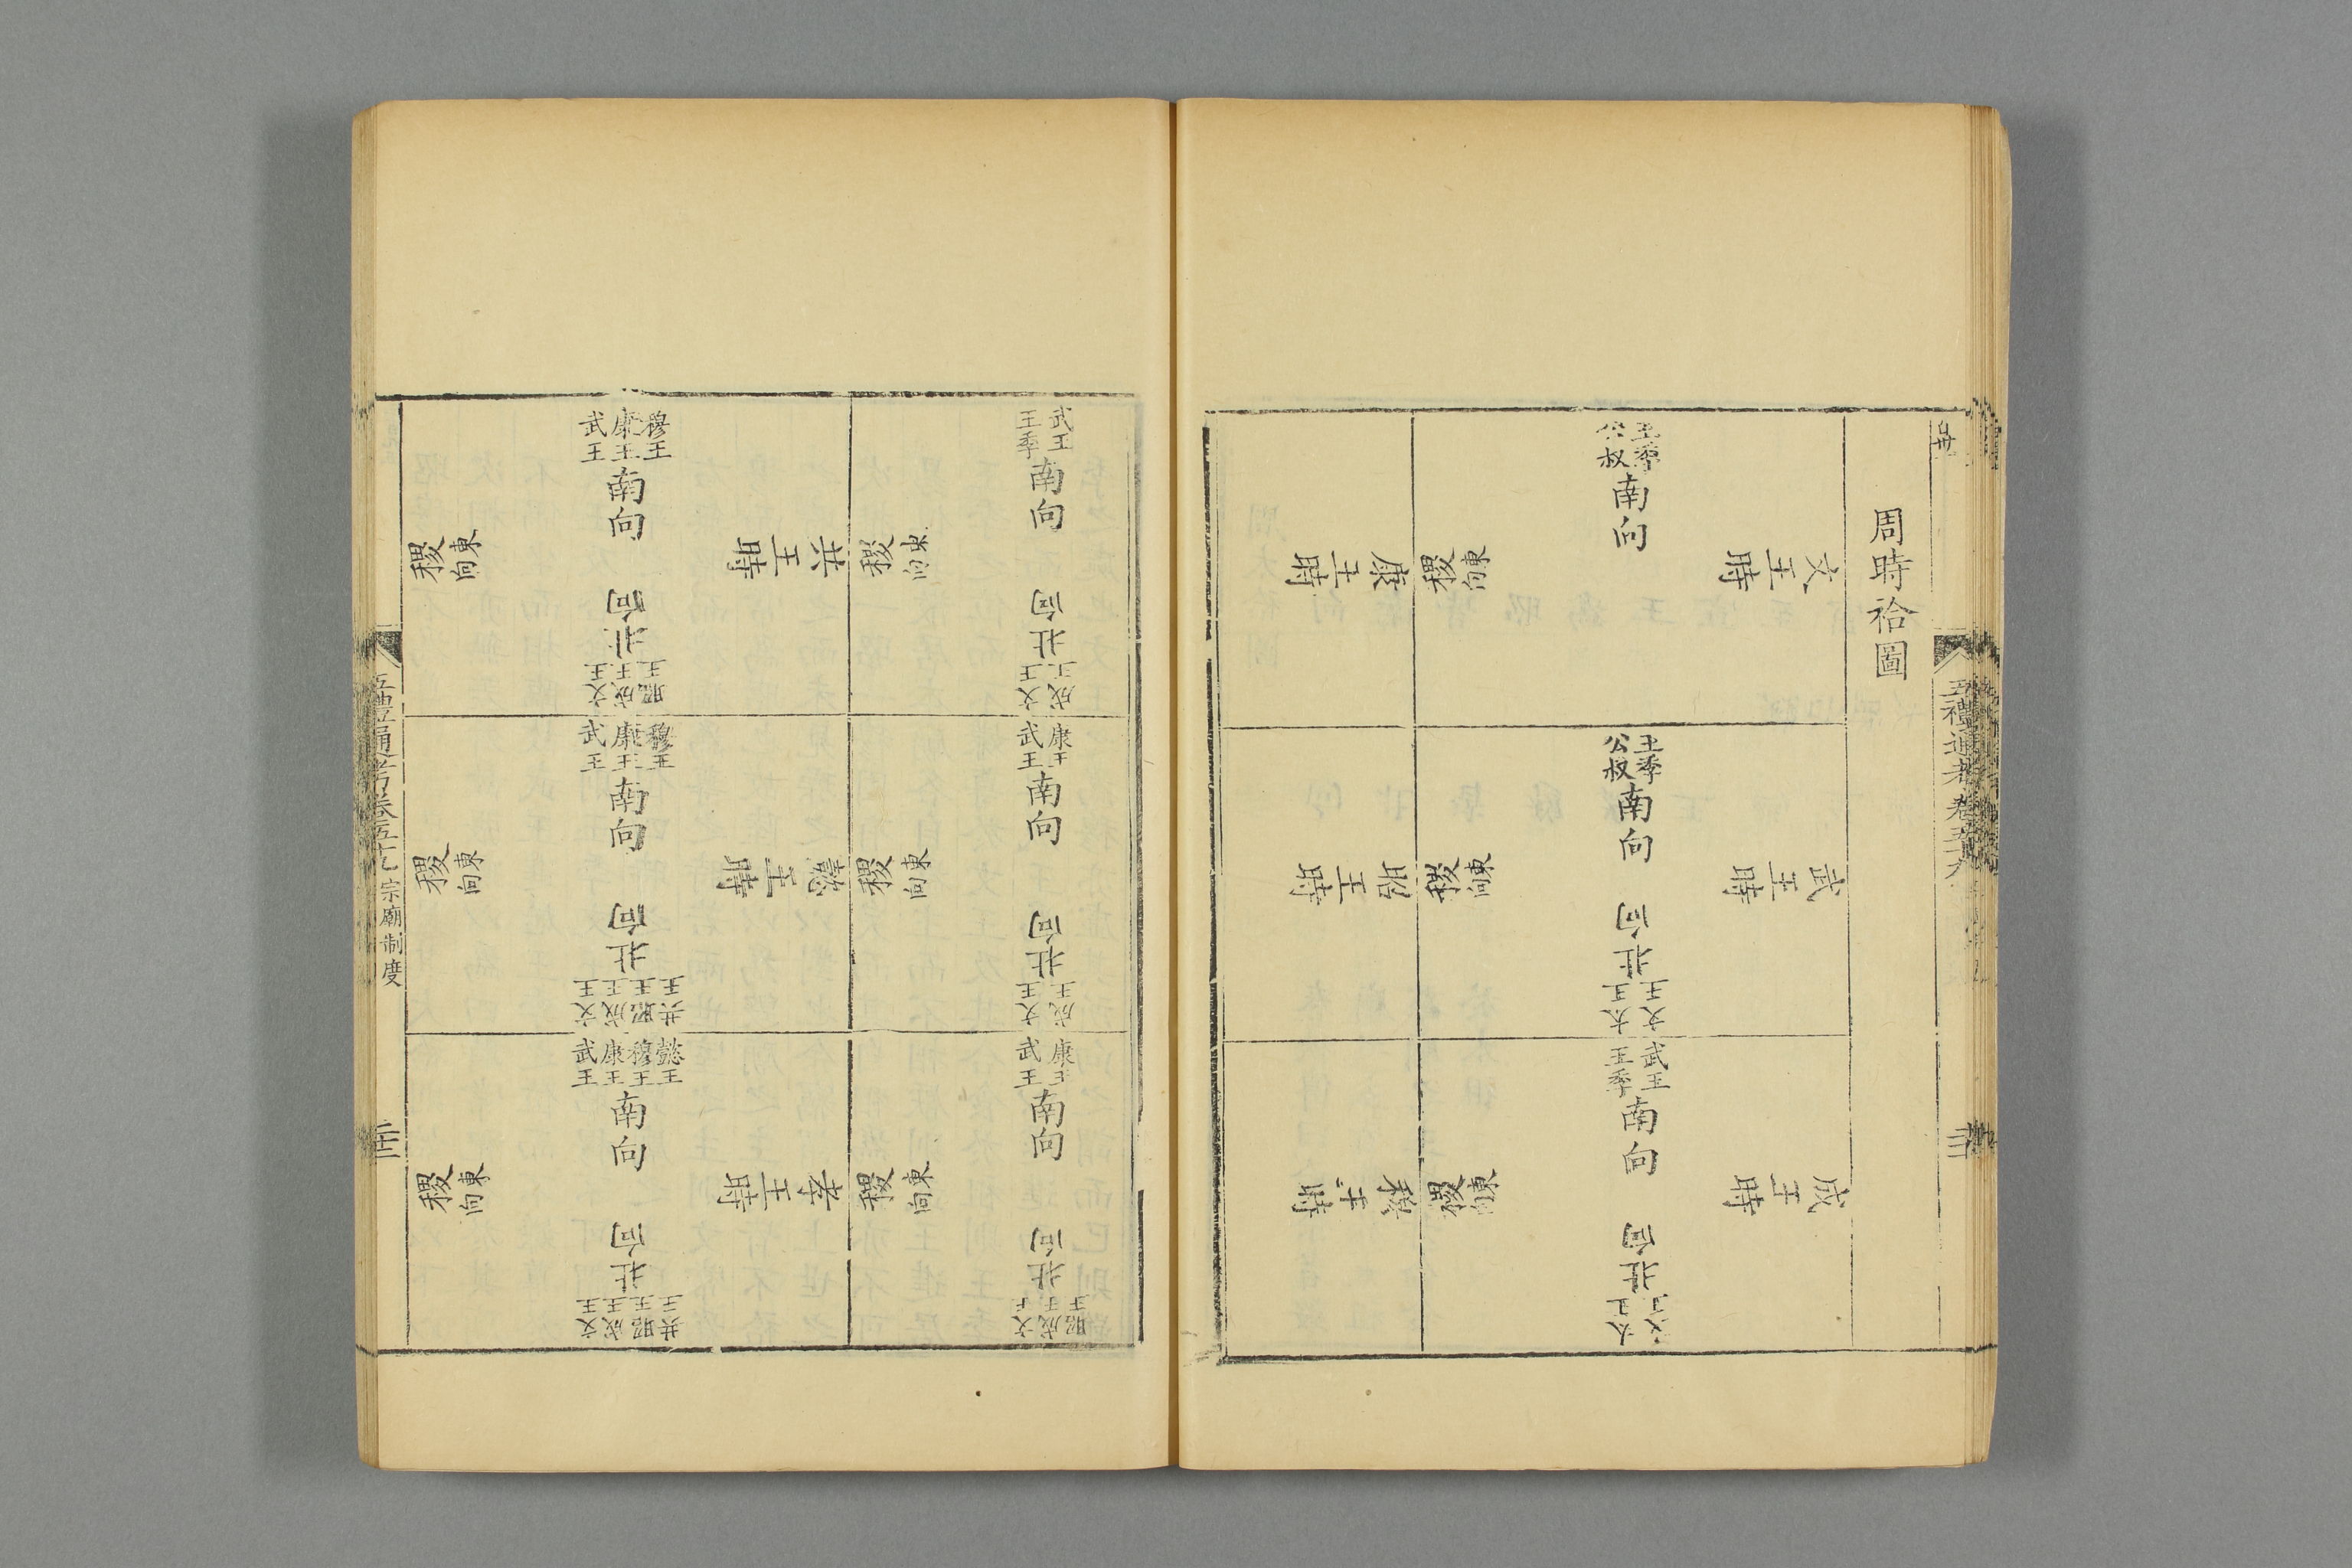 周時祫圖
文王時
王季
公叔
南向
北向
稷東向
武王時
王季
公叔
南向
文王
大王
北向
稷東向
成王時
武王
王季
南向
文王
大王
北向
稷東向
康王時
武王
王季
南向
成王
文王
北向
稷東向
昭王時
康王
武王
南向
成王
文王
北向
稷東向
穆王時
康王
武王
南向
昭王
成王
文王
北向
稷東向
共王時
穆王
康王
武王
南向
昭王
成王
文王
北向
稷東向
懿王時
穆王
康王
武王
南向
共王
昭王
成王
文王
北向
稷東向
孝王時
懿王
穆王
康王
武王
南向
共王
昭王
成王
文王
北向
稷東向
五禮通考卷五十九 宗廟制度